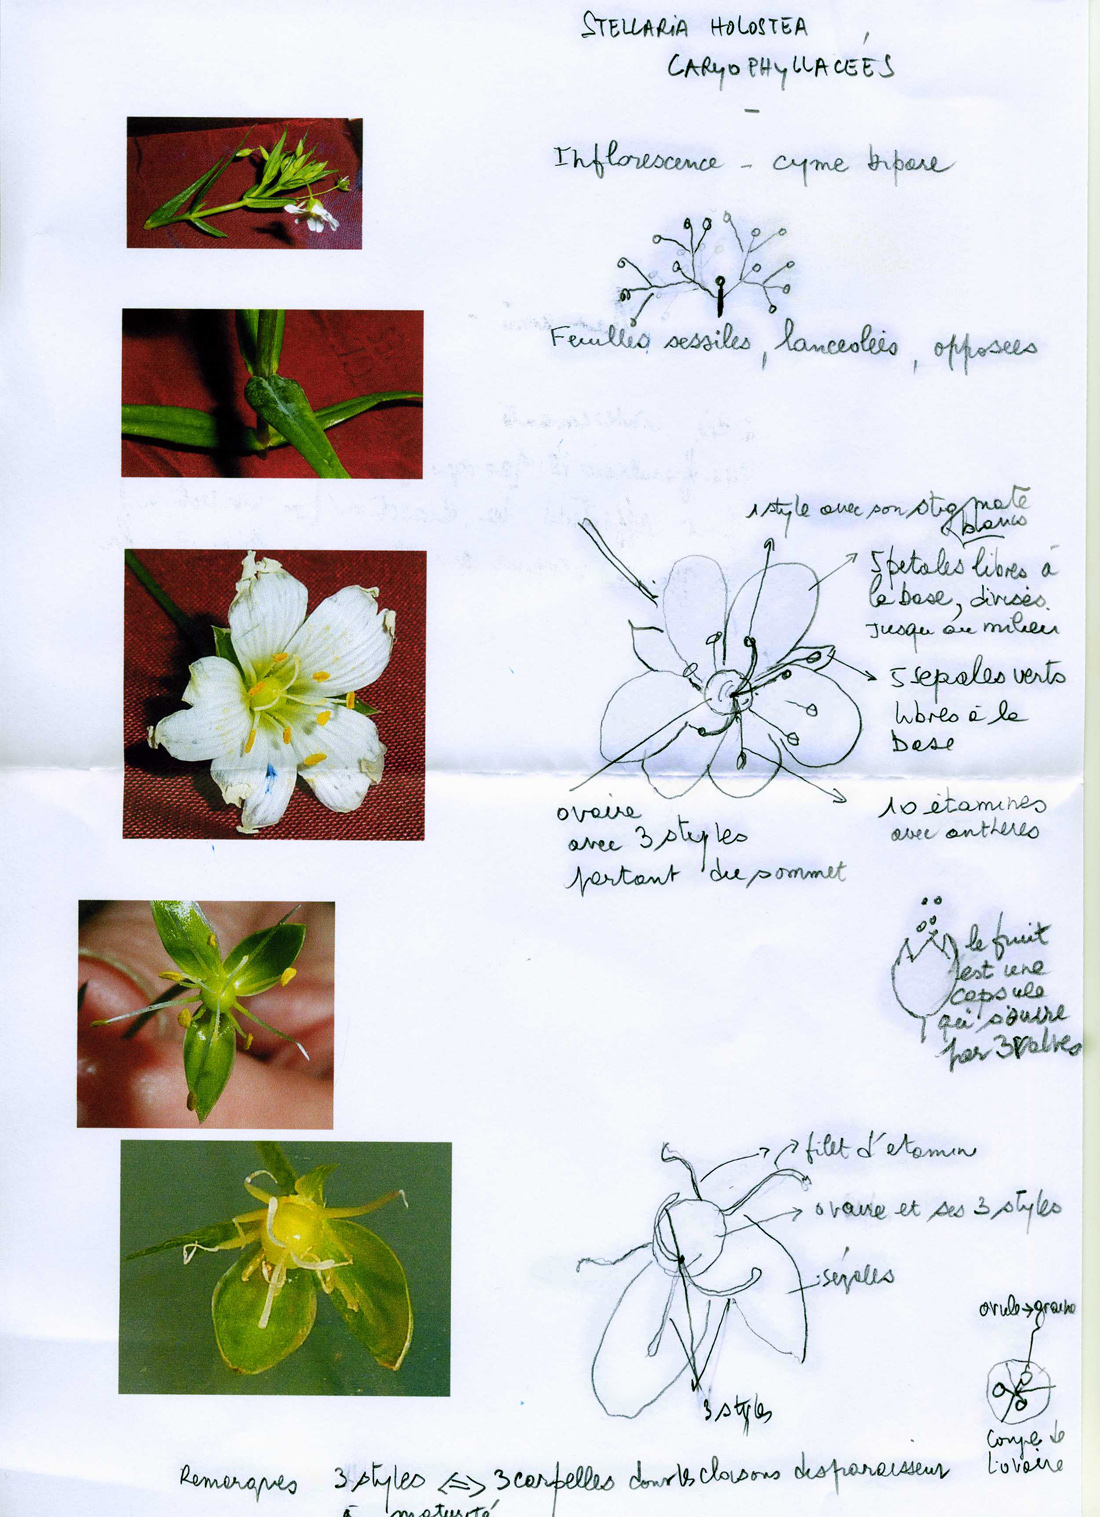 STELLARIA HOLOSTEA
CARYOPHYLLACÉES
Inflorescence - cyme bipare
Feuilles sessiles, lanceolées, opposées
1 style avec son stigmate
blancs
5 petales libres à
la base, divisés
jusqu'au milieu
5 sepales verts
libres à la
base
10 étamines
avec anthères
ovaire
avec 3 styles
partant du sommet
le fruit
est une
capsule
qui s'ouvre
par 3 valves
filet d'etamine
ovaire et ses 3 styles
sépales
ovule → graine
3 styles
Coupe de
l'ovaire
Remarques 3 styles <=> 3 carpelles dont les cloisons disparaissent
à maturité